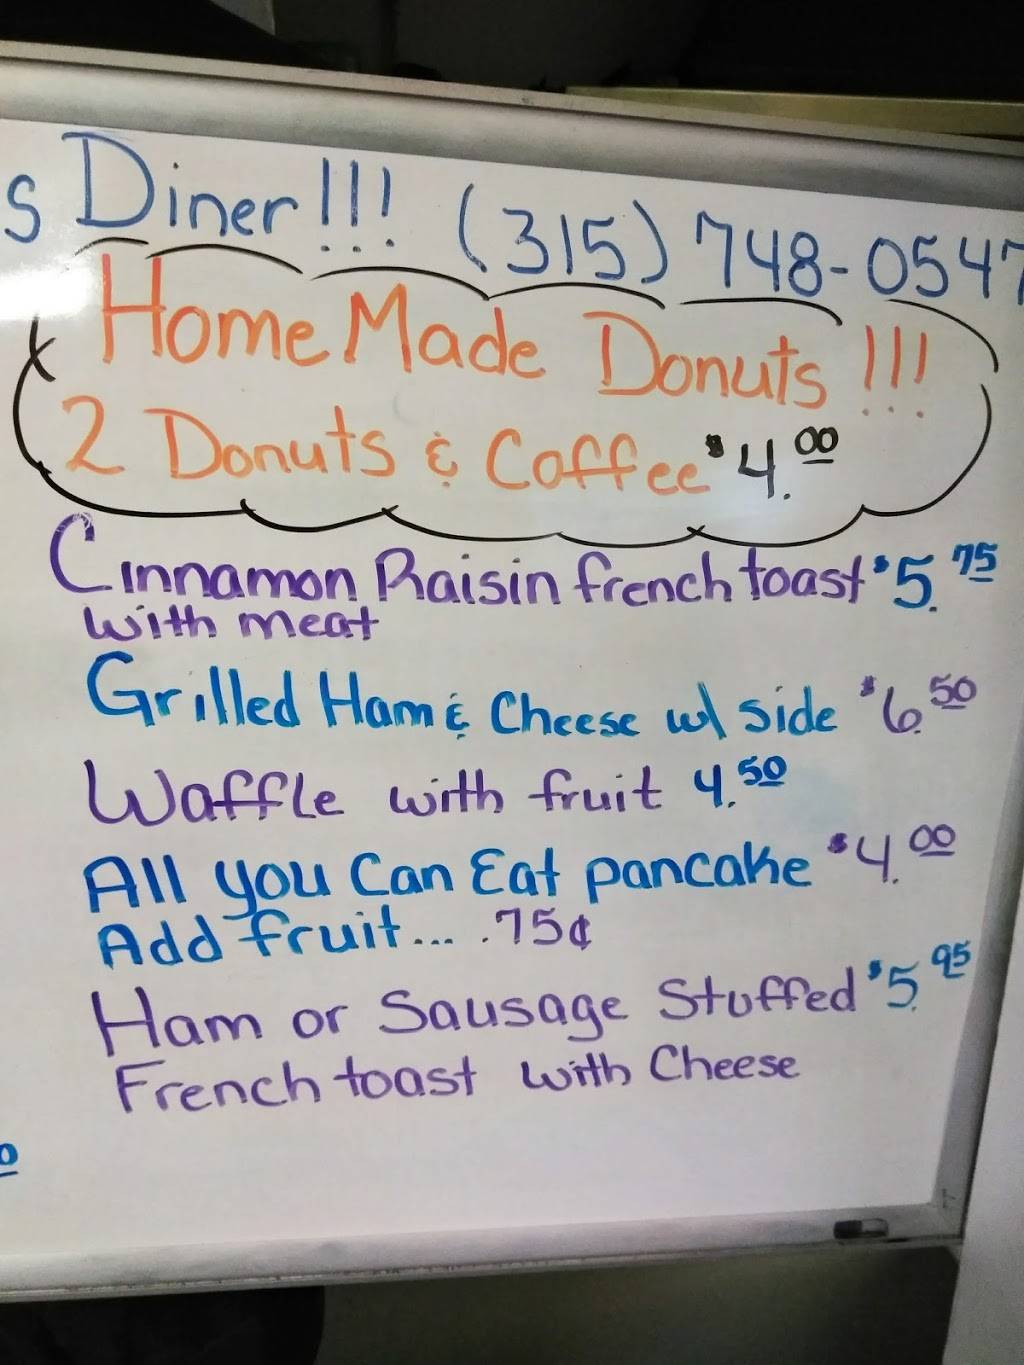 s Diner!!! (315) 748-0547
Home Made Donuts!!!
2 Donuts & Coffee $4.00
Cinnamon Raisin french toast $5.75
with meat
Grilled Ham & Cheese w/ side $6.50
Waffle with fruit 4.50
All you Can Eat pancake $4.00
Add fruit... .75¢
Ham or Sausage Stuffed $5.95
French toast with Cheese